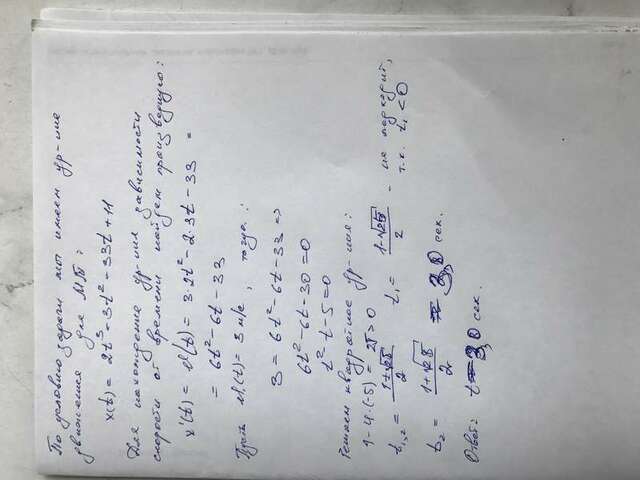 По условию задачи мы имеем ур-ние
движения для МТ:
x(t) = 2t³-3t²-33t+11
Для нахождение ур-ния зависимости
скорости от времени найдем производную:
x'(t) = v(t) = 3·2t²-2·3t-33 =
= 6t²-6t-33
Пусть v(t) = 3 м/с, тогда:
3 = 6t²-6t-33 =>
6t²-6t-30=0
t²-t-5=0
Решаем квадратное ур-ния:
1-4·(-5) = >0
t₁,₂ = t₁ = - не подходит, т.к. t₁<0
t₂ = = сек.
Ответ: t = сек.